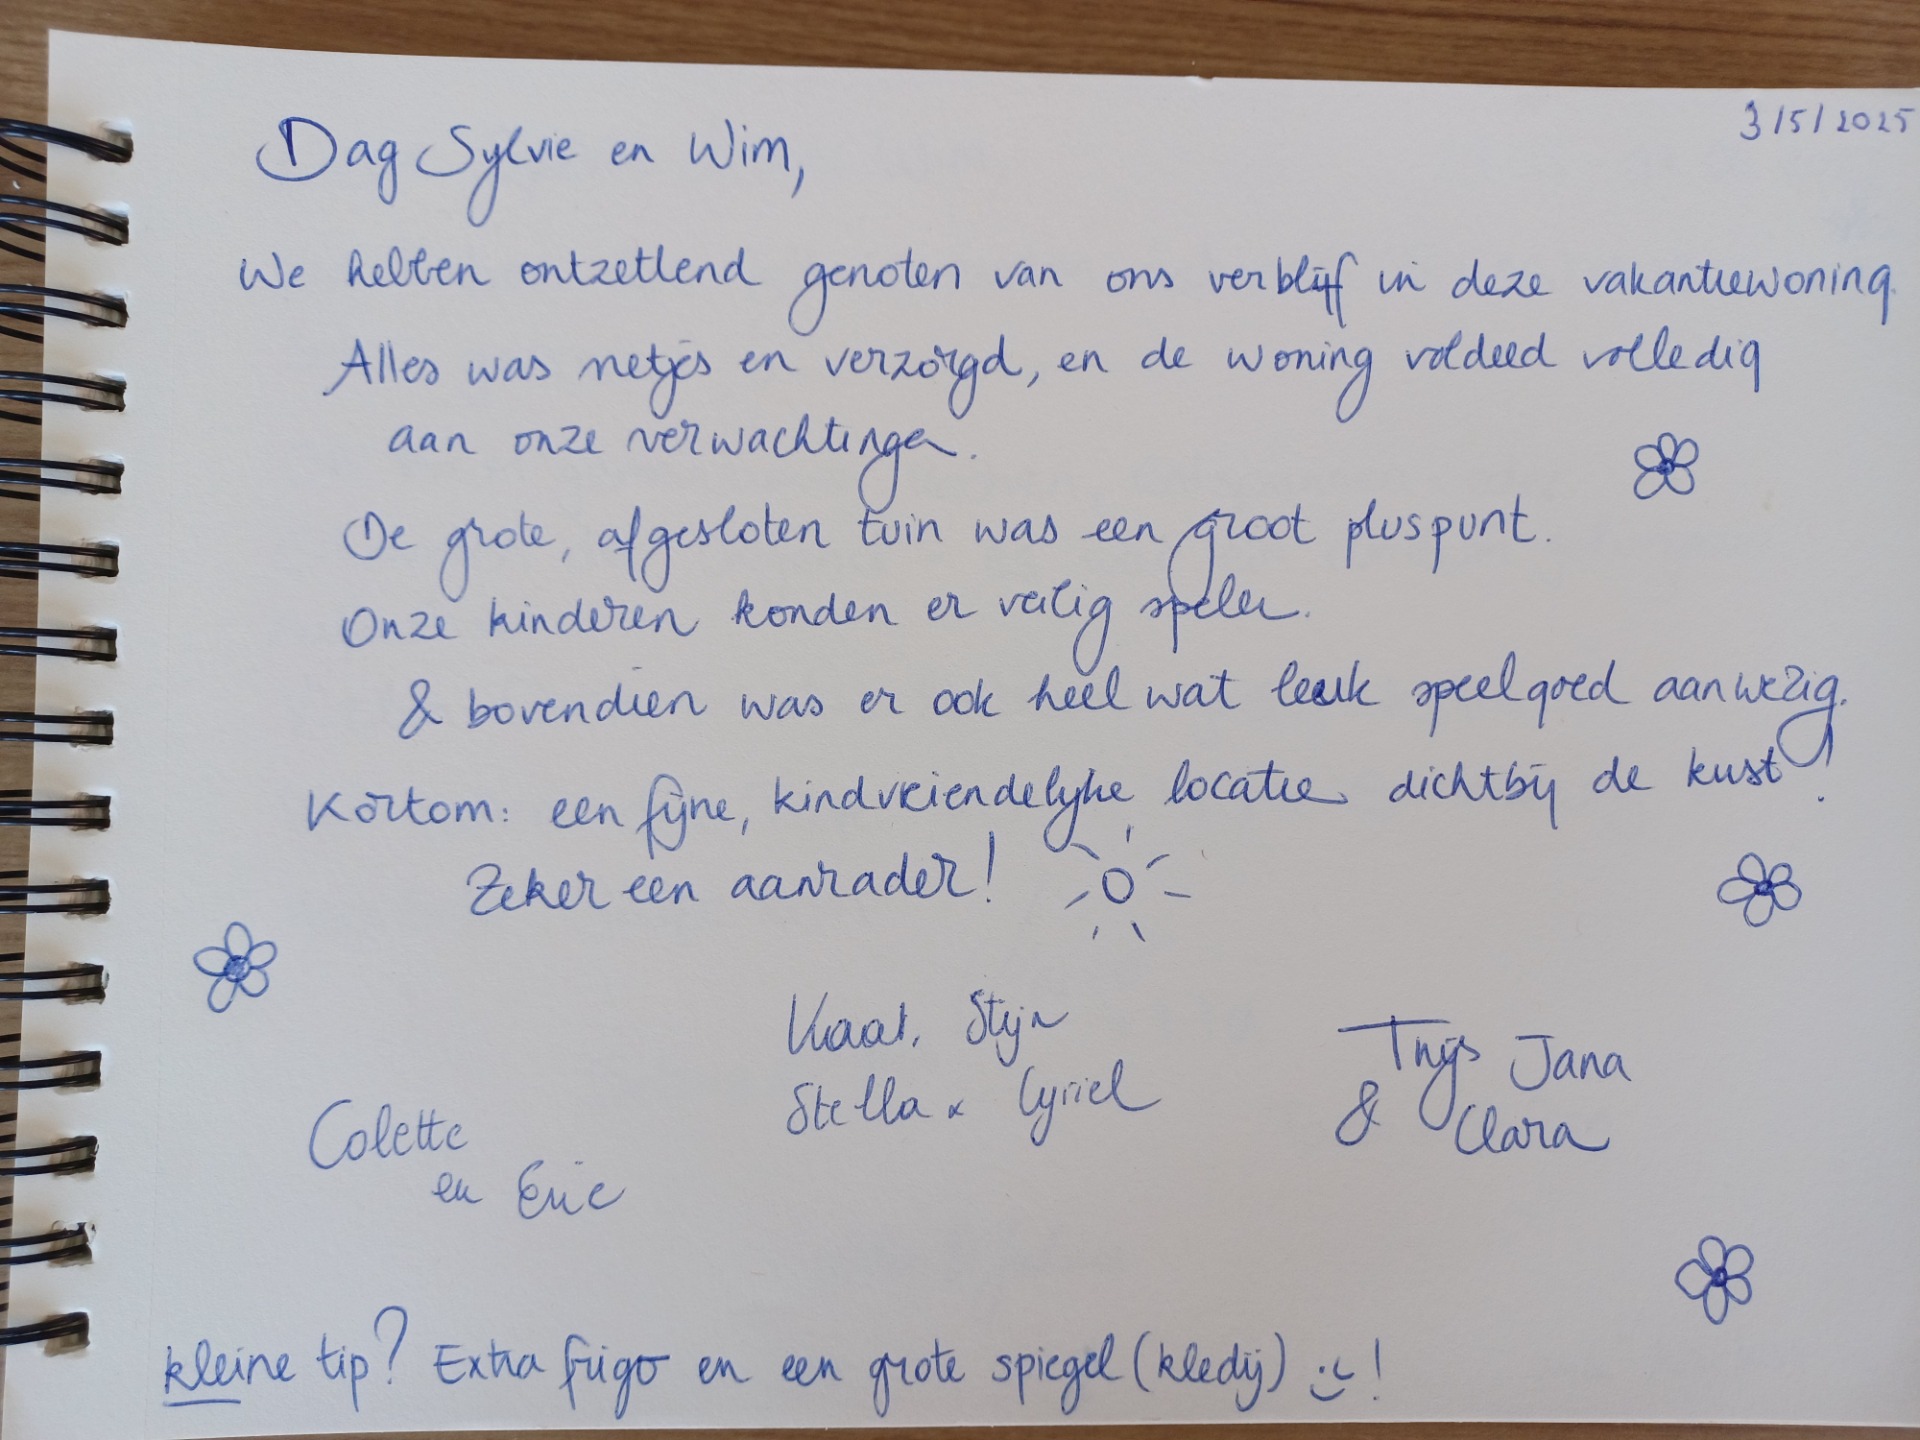 3/5/2025
Dag Sylvie en Wim,
We hebben ontzettend genoten van ons verblijf in deze vakantiewoning.
Alles was netjes en verzorgd, en de woning voldeed volledig
aan onze verwachtingen.
De grote, afgesloten tuin was een groot pluspunt.
Onze kinderen konden er veilig spelen.
& bovendien was er ook heel wat leuk speelgoed aanwezig.
Kortom: een fijne, kindvriendelijke locatie dichtbij de kust!
Zeker een aanrader!
Kaat, Stijn
Stella x Cyriel
Thijs Jana
& Clara
Colette
en Eric
kleine tip? Extra frigo en een grote spiegel (kledij) :) !